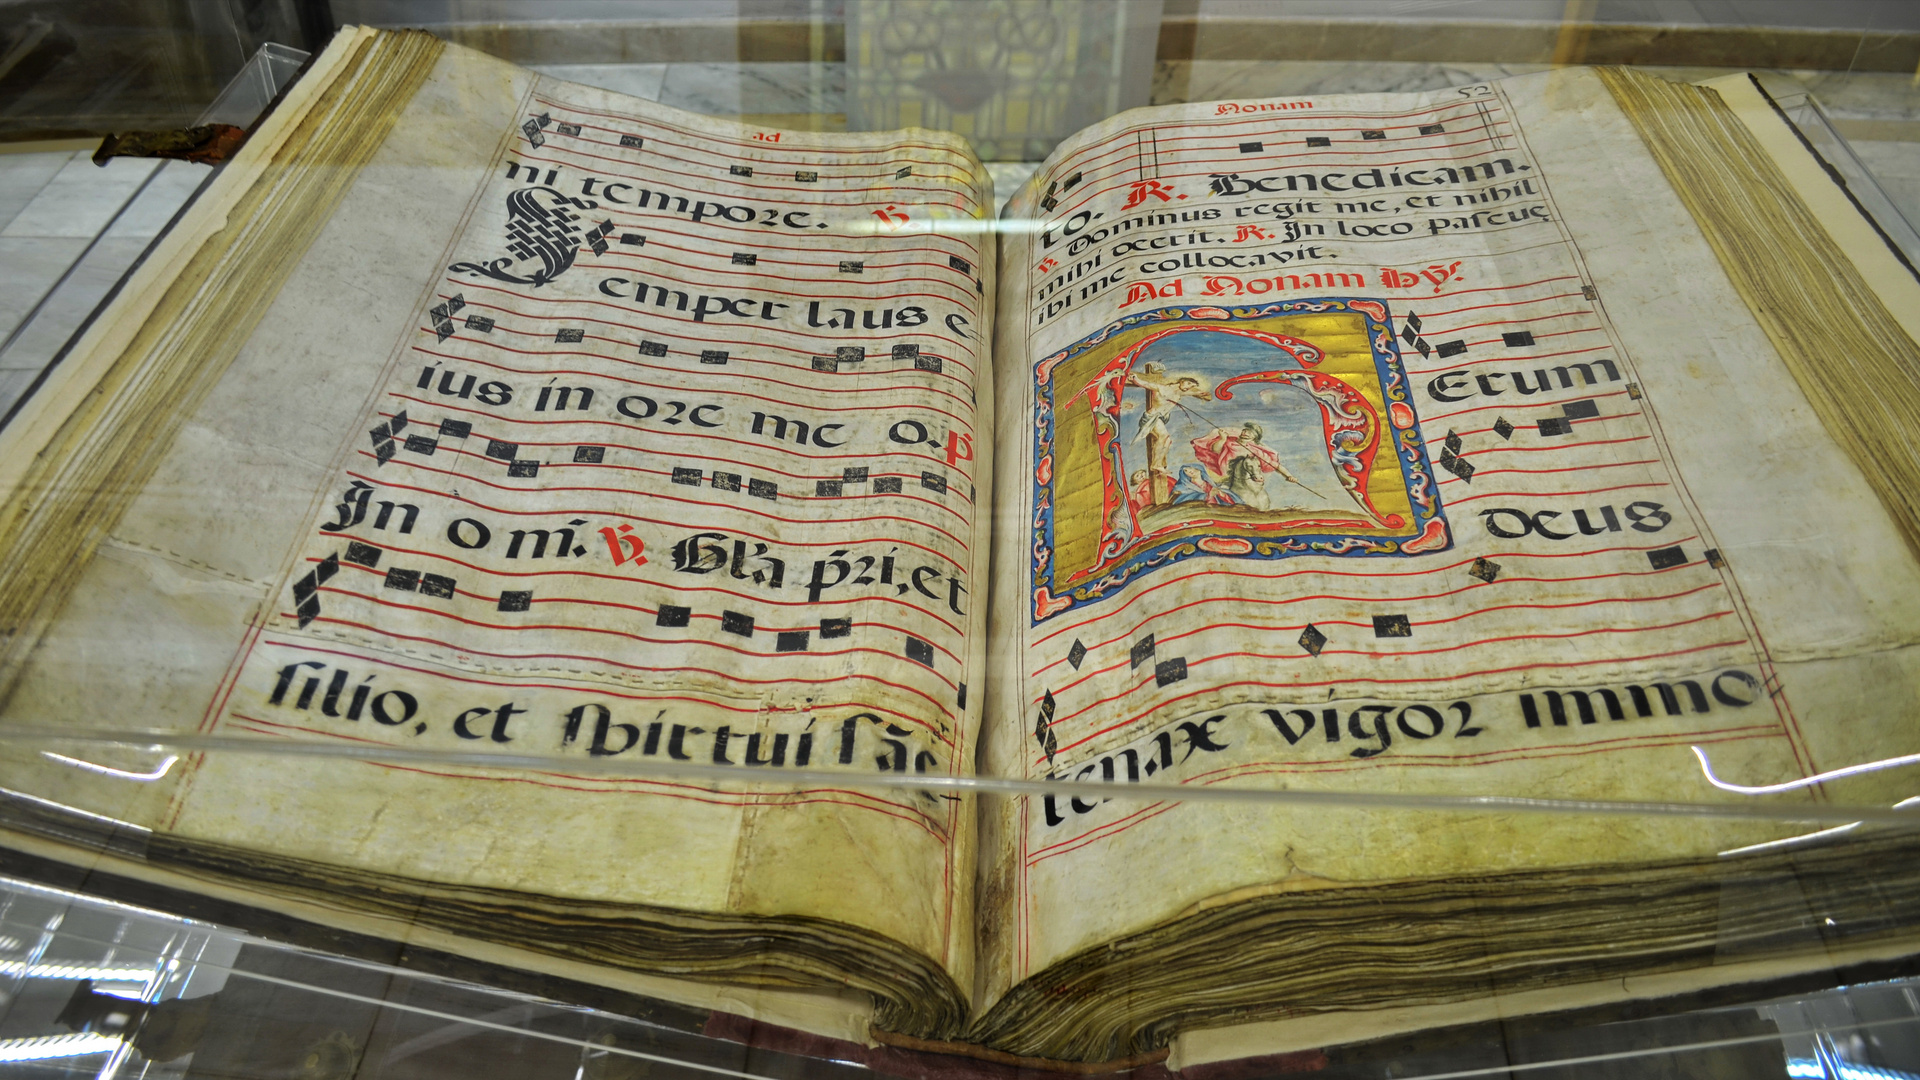 ad
ni tempore. ℣.
Semper laus e
ius in ore me o. p̄
In o m̄. ℣. Gl̄a p̄ri, et
filio, et spirtui sāc
Nonam
52
to. ℟. Benedicam.
℣. Dominus regit me, et nihil
mihi deerit. ℟. In loco pascuę
ibi me collocavit.
Ad Nonam hỹ.
Rerum
deus
tenax vigor immo